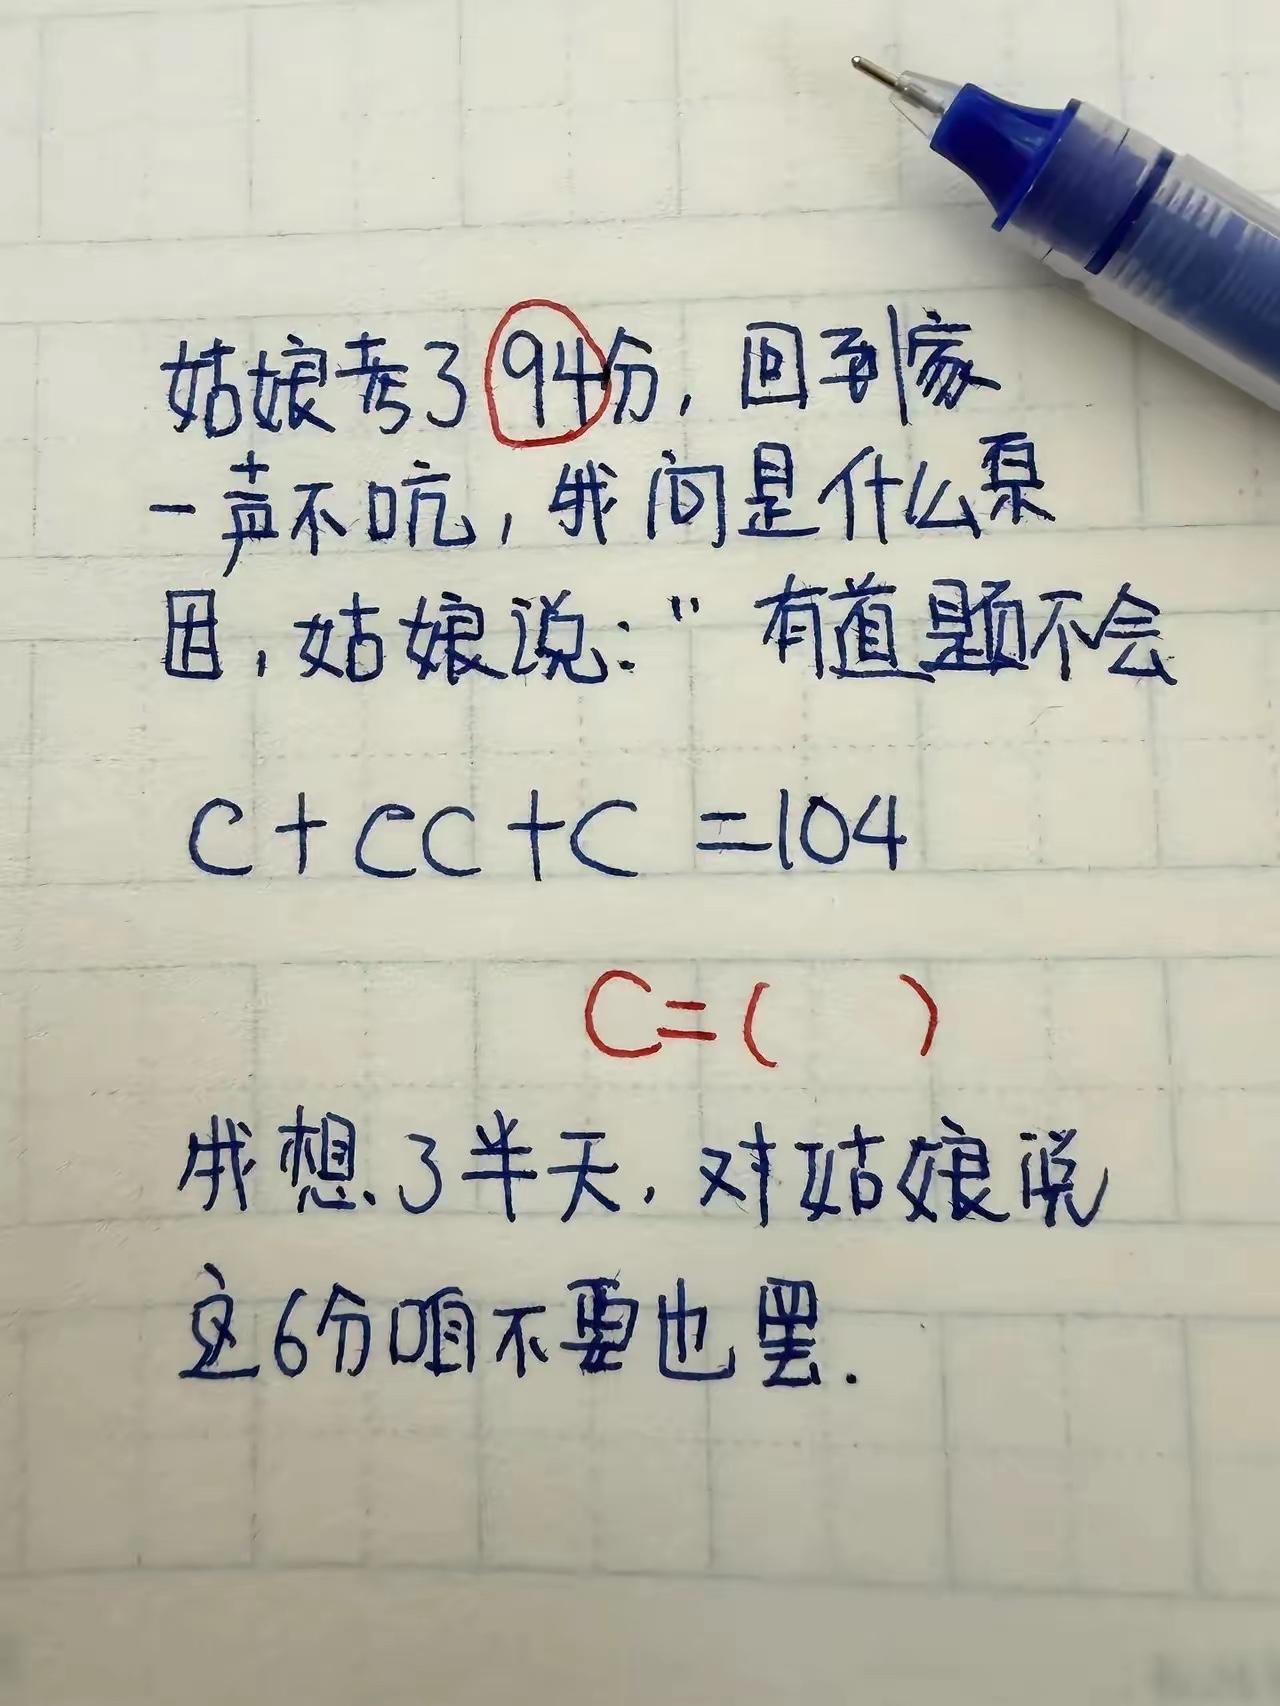 姑娘考了94分，回到家
一声不吭，我问是什么原
因，姑娘说：“有道题不会
C+CC+C=104
C=( )
我想了半天，对姑娘说
这6分咱不要也罢.